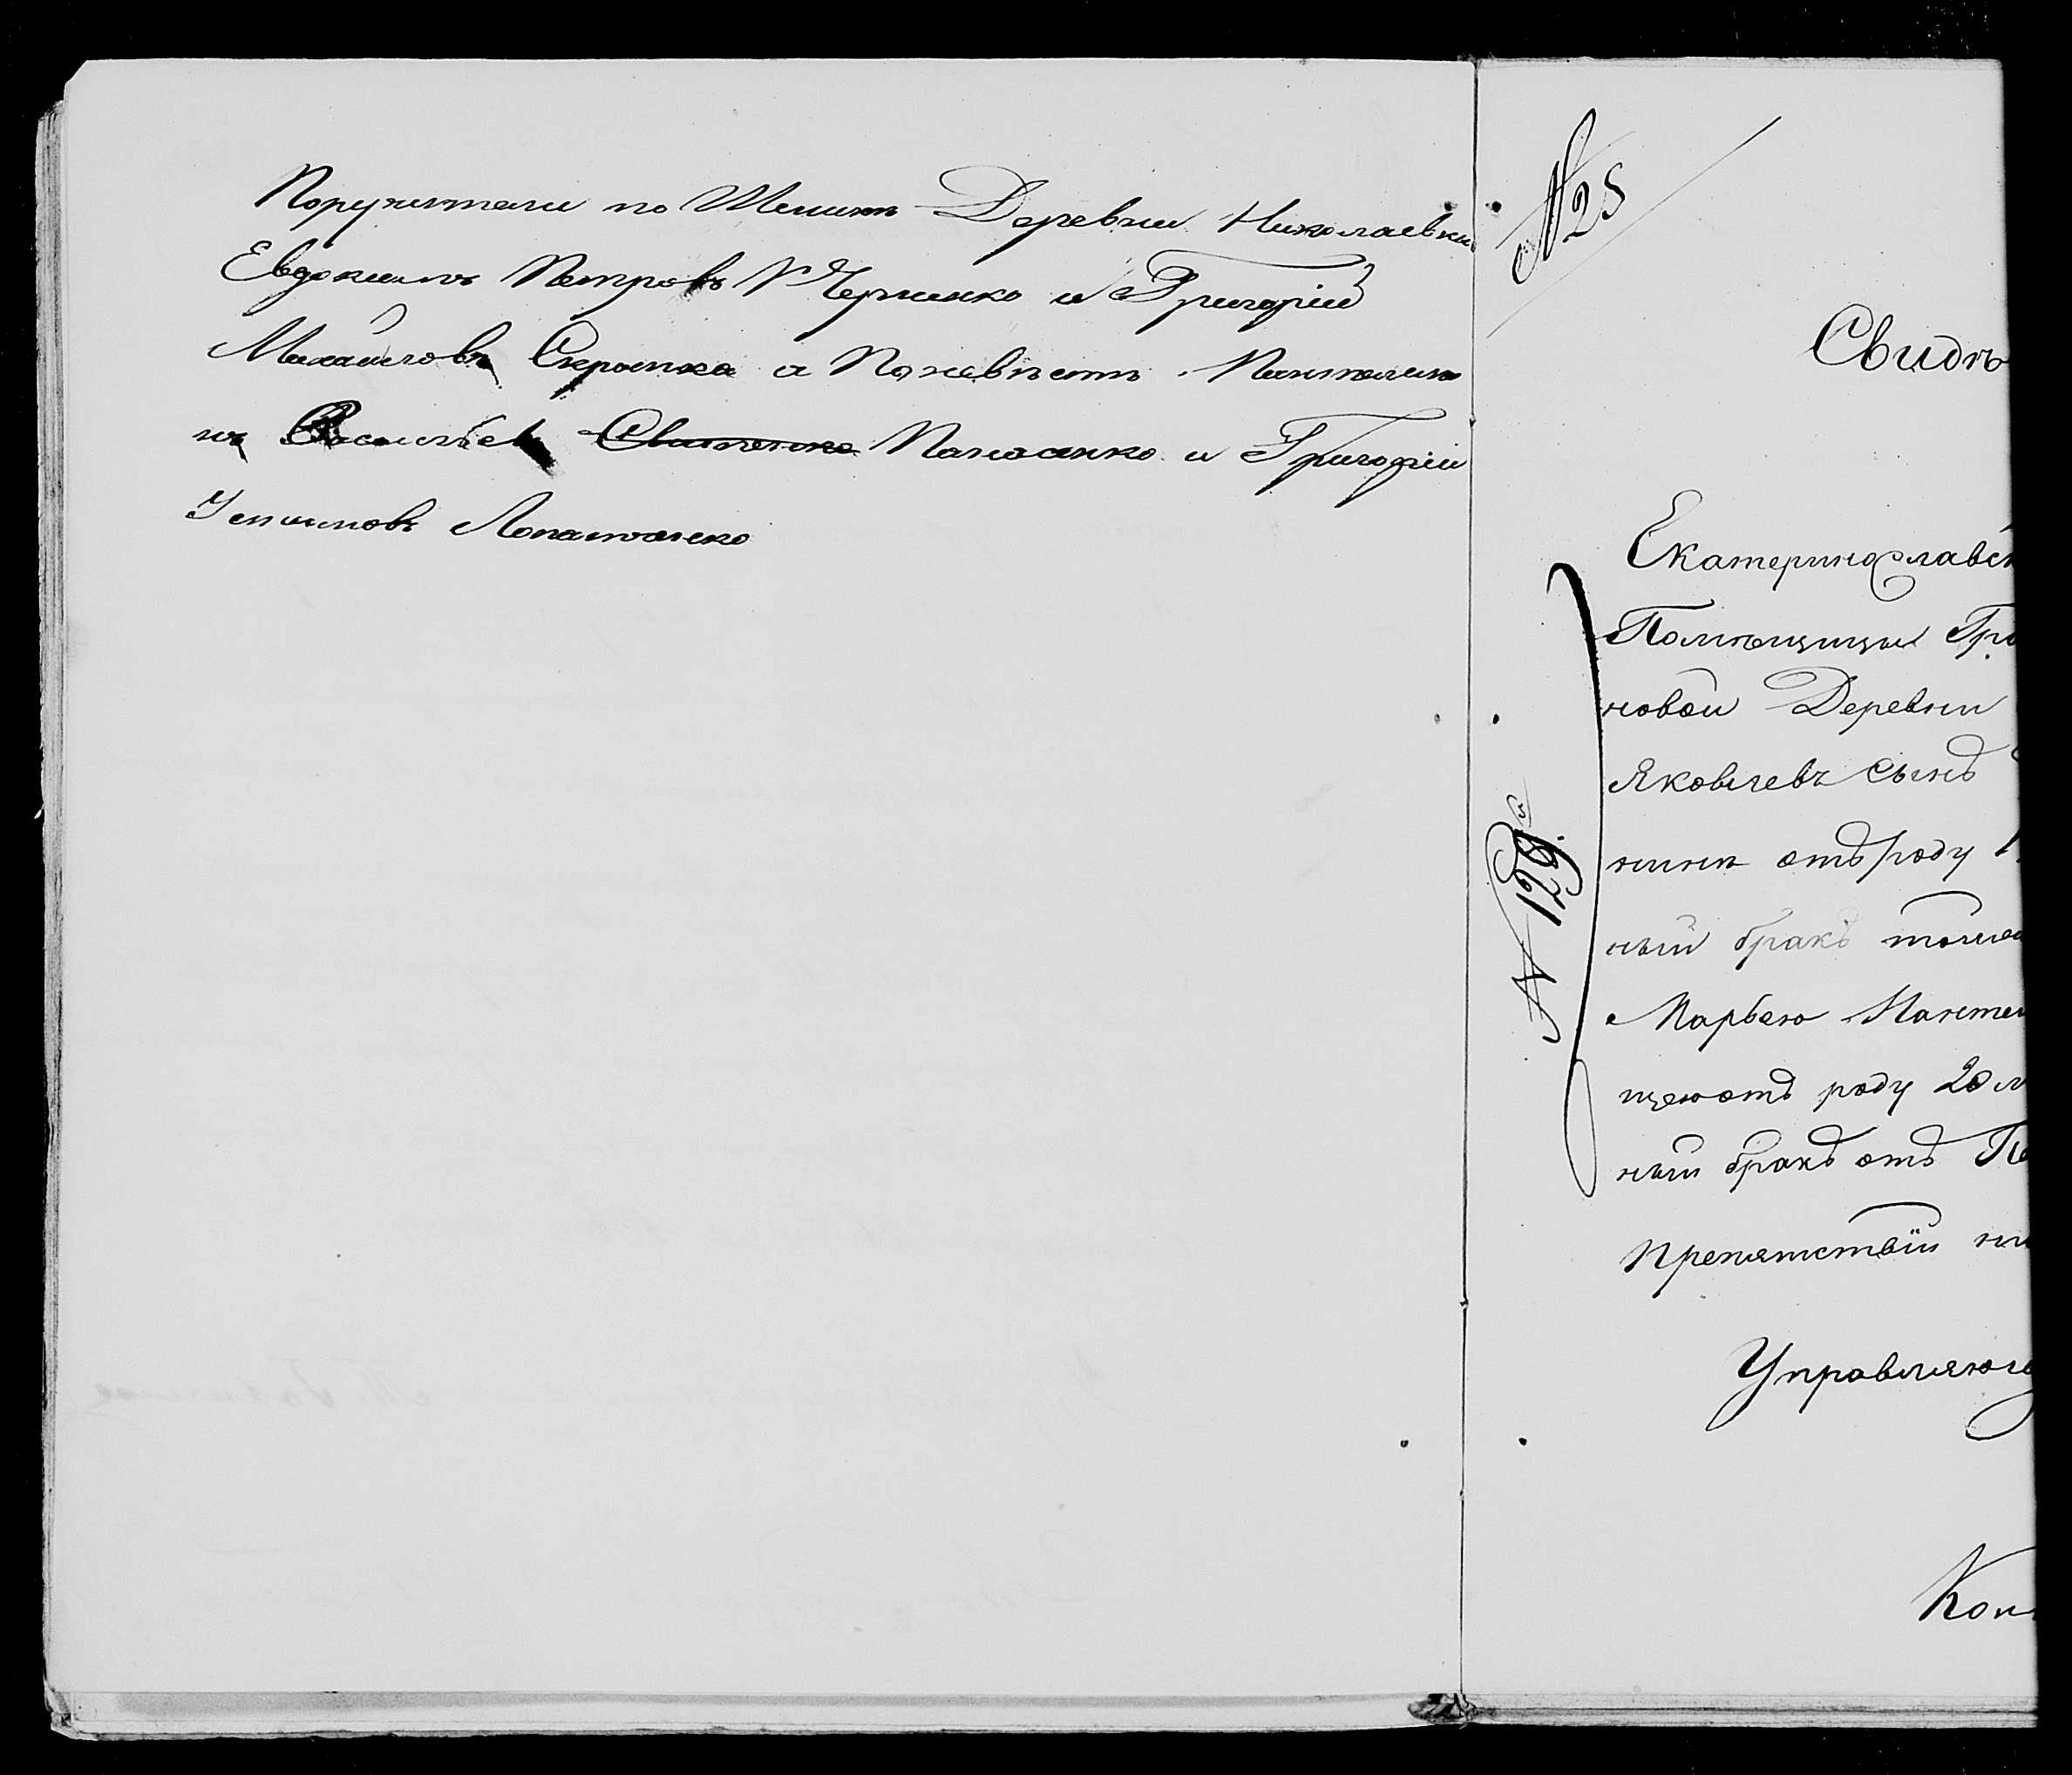 Поручители по Женихѣ Деревни Николаевки
Евдокимъ Петровъ Черненко и Григорій
Михайловъ Скрыпка а По невѣстѣ Пантелимо
нъ Васильевъ Свитенко Панасенко и Григорій
Устимовъ Лопатченко
№ 25
Свидѣ
№ 129й
Екатеринославск
Помѣщицы Гра
новой Деревни
Яковлевъ сынъ
отъ роду
ный бракъ
Марѳею Пантел
щею отъ роду 20 л
ный бракъ отъ
препятствій
Управляющ
Кон